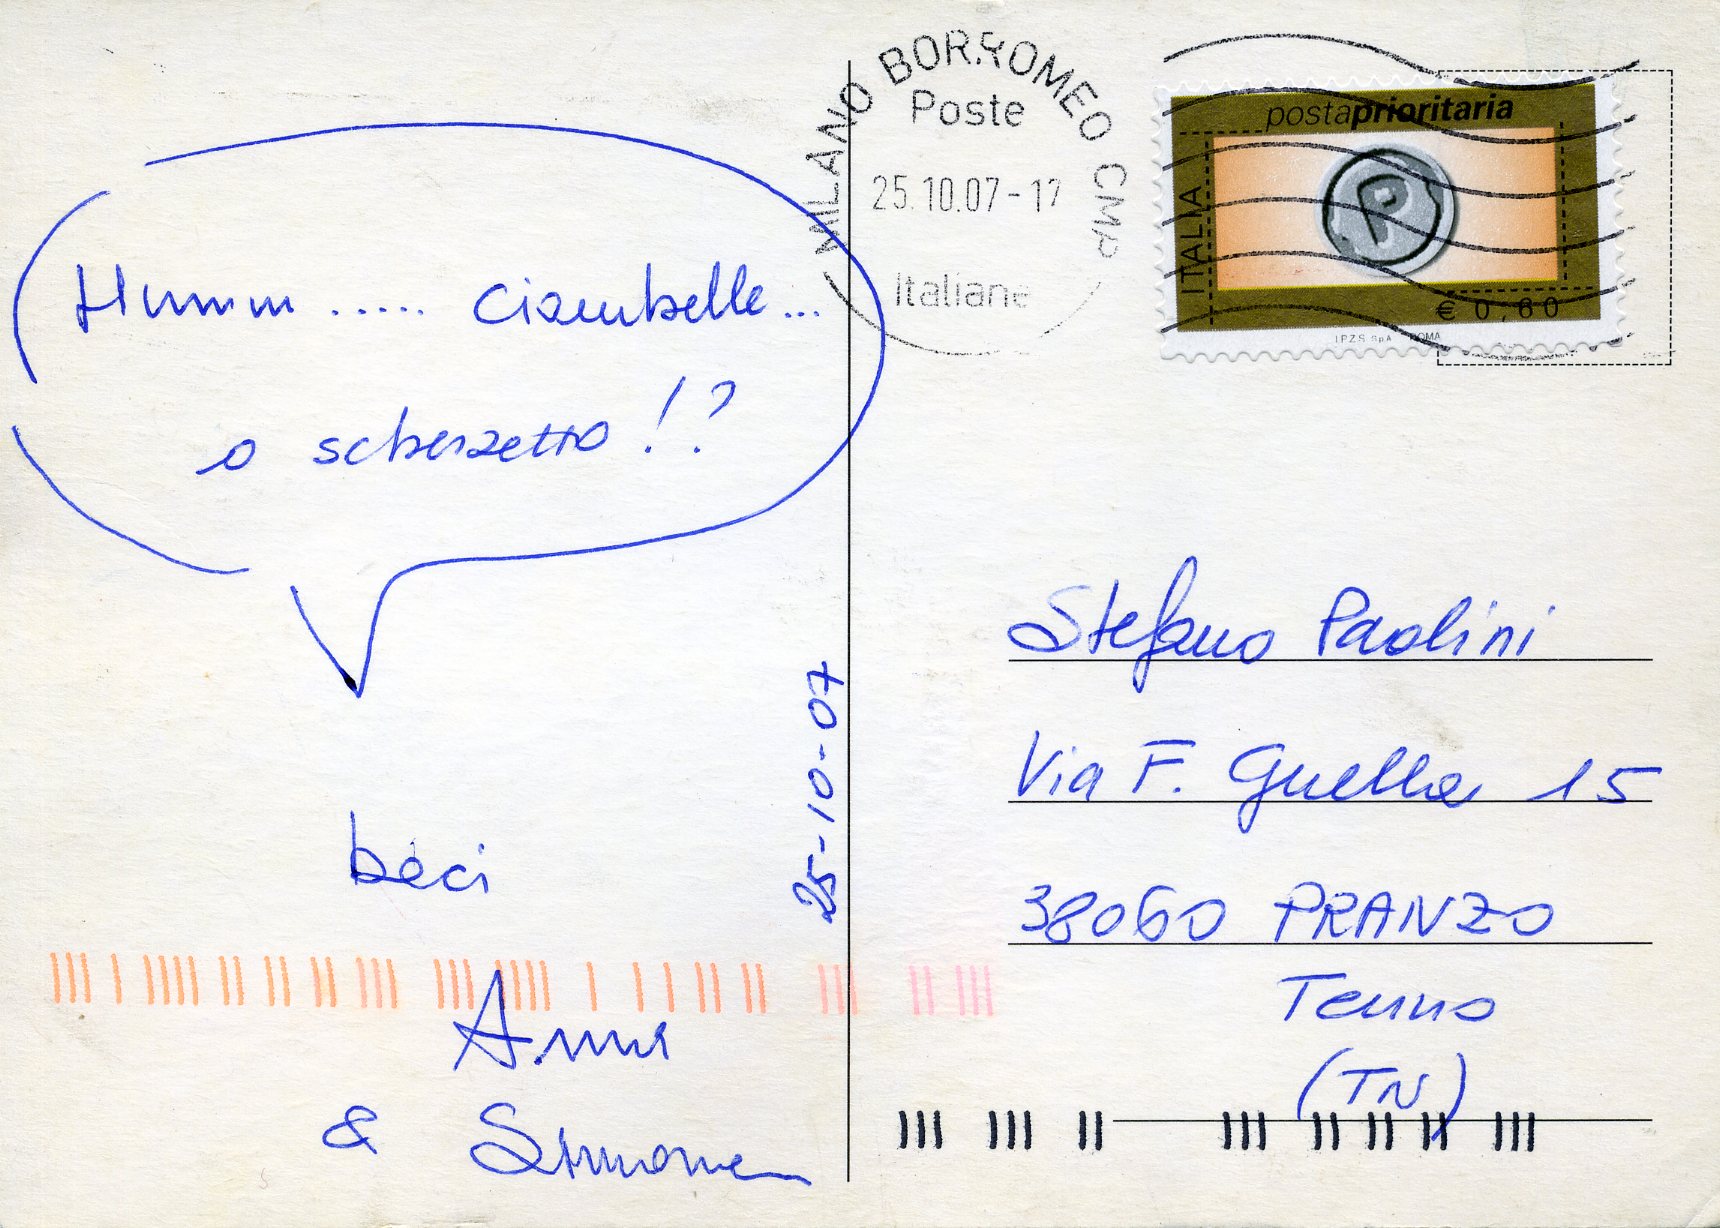 Hmmm ..... ciambelle...
o scherzetto !?
baci
Anna
& Simone
25-10-07
MILANO BORROMEO CMP
Poste
25.10.07-17
Italiane
postaprioritaria
ITALIA
€ 0,60
I.P.Z.S. S.p.A. ROMA
Stefano Paolini
Via F. Guella 15
38060 PRANZO
Tenno
(TN)